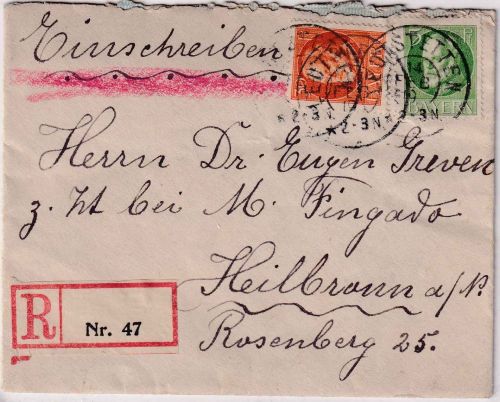 Einschreiben
BAYERN
2-3N.
2-3N
2-3N.
Herrn Dr. Eugen Greven
z. Zt bei M. Fingado
Heilbronn a/N.
Rosenberg 25.
R
Nr. 47